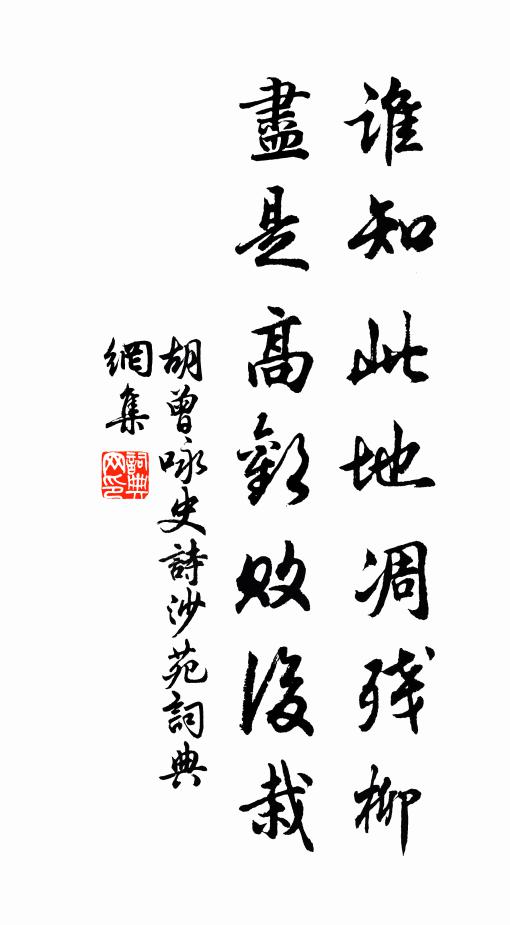 谁知此地凋残柳
盡是高歡败後栽
胡曾咏史詩沙苑詞典
網集
詞典網印